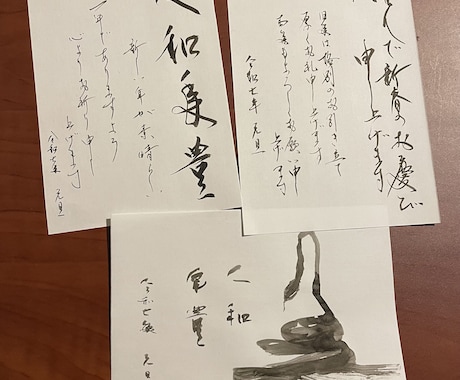 んで新春のお慶び
申し上げます
旧年は格別のお引き立て
厚く御礼申し上げます
本年もよろしくお願い申し
上げます
令和七年 元旦
人和年豊
新しい年が素晴らしい
一年でありますよう
心よりお祈り申し
上げます
令和七年 元旦
人和
年豊
令和七歳 元旦